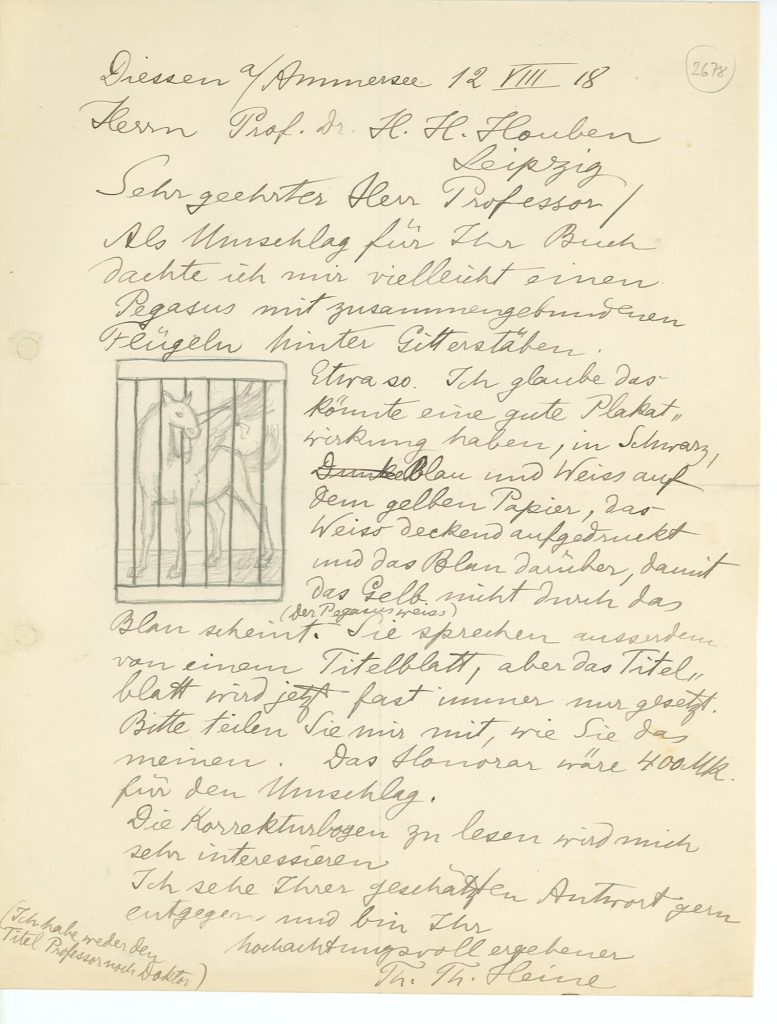 2678
Diessen a/Ammersee 12 VIII 18
Herrn Prof. Dr. H. H. Houben
Leipzig
Sehr geehrter Herr Professor /
Als Umschlag für Ihr Buch
dachte ich mir vielleicht einen
Pegasus mit zusammengebundenen
Flügeln hinter Gitterstäben.
Etwa so. Ich glaube das
könnte eine gute Plakat„
wirkung haben, in Schwarz,
Dunkel Blau und Weiss auf
dem gelben Papier, das
Weiss deckend aufgedruckt
und das Blau darüber, damit
das Gelb nicht durch das
(Der Pegasus weiss)
Blau scheint. Sie sprechen ausserdem
von einem Titelblatt, aber das Titel„
blatt wird jetzt fast immer nur gesetzt.
Bitte teilen Sie mir mit, wie Sie das
meinen. Das Honorar wäre 400 Mk.
für den Umschlag.
Die Korrekturbogen zu lesen wird mich
sehr interessieren
Ich sehe Ihrer geschätzten Antwort gern
entgegen und bin Ihr
hochachtungsvoll ergebener
Th. Th. Heine
(Ich habe weder den
Titel Professor noch Doktor)